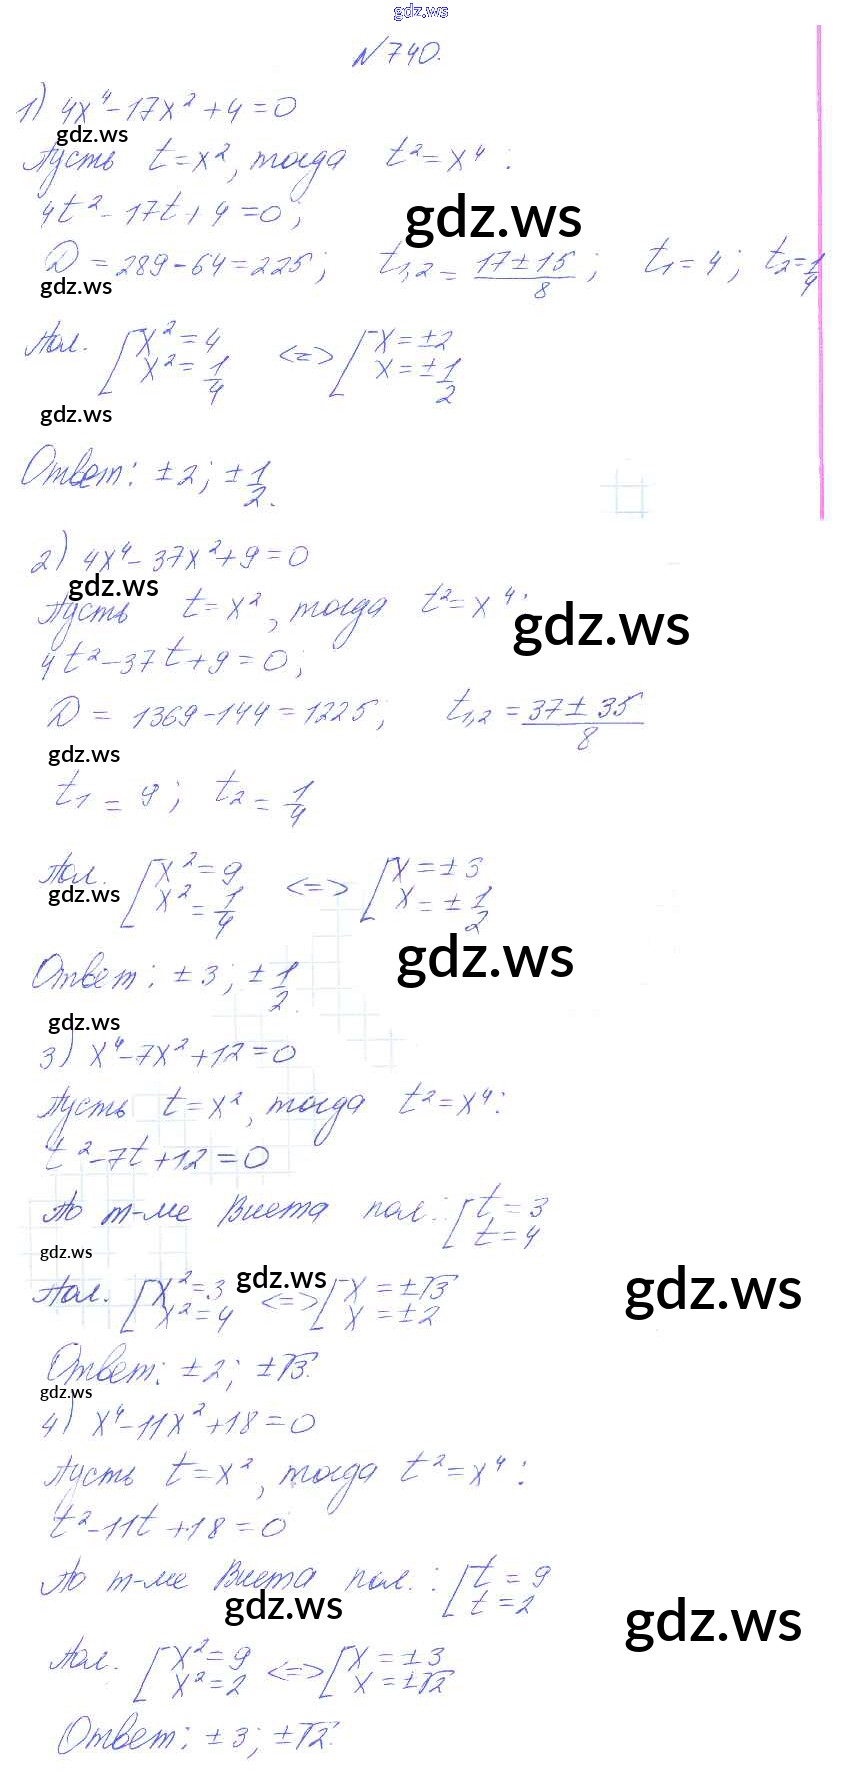 gdz.ws
№740.
1) 4x⁴-17x²+4=0
gdz.ws
Пусть t=x², тогда t²=x⁴:
4t²-17t+4=0;
gdz.ws
D=289-64=225; t₁,₂=(17±15)/8; t₁=4; t₂=1/4
gdz.ws
Пол. [x²=4 <=> [x=±2
x²=1/4 x=±1/2
gdz.ws
Ответ: ±2; ±1/2.
2) 4x⁴-37x²+9=0
gdz.ws
Пусть t=x², тогда t²=x⁴:
gdz.ws
4t²-37t+9=0;
D=1369-144=1225; t₁,₂=(37±35)/8
gdz.ws
t₁=9; t₂=1/4
Пол. [x²=9 <=> [x=±3
gdz.ws
x²=1/4 x=±1/2
gdz.ws
Ответ: ±3; ±1/2.
gdz.ws
3) x⁴-7x²+12=0
Пусть t=x², тогда t²=x⁴:
t²-7t+12=0
По т-ме Виета пол.: [t=3
t=4
gdz.ws
gdz.ws
gdz.ws
Пол. [x²=3 <=> [x=±√3
x²=4 x=±2
Ответ: ±2; ±√3.
gdz.ws
4) x⁴-11x²+18=0
Пусть t=x², тогда t²=x⁴:
t²-11t+18=0
По т-ме Виета пол.: [t=9
t=2
gdz.ws
gdz.ws
Пол. [x²=9 <=> [x=±3
x²=2 x=±√2
Ответ: ±3; ±√2.